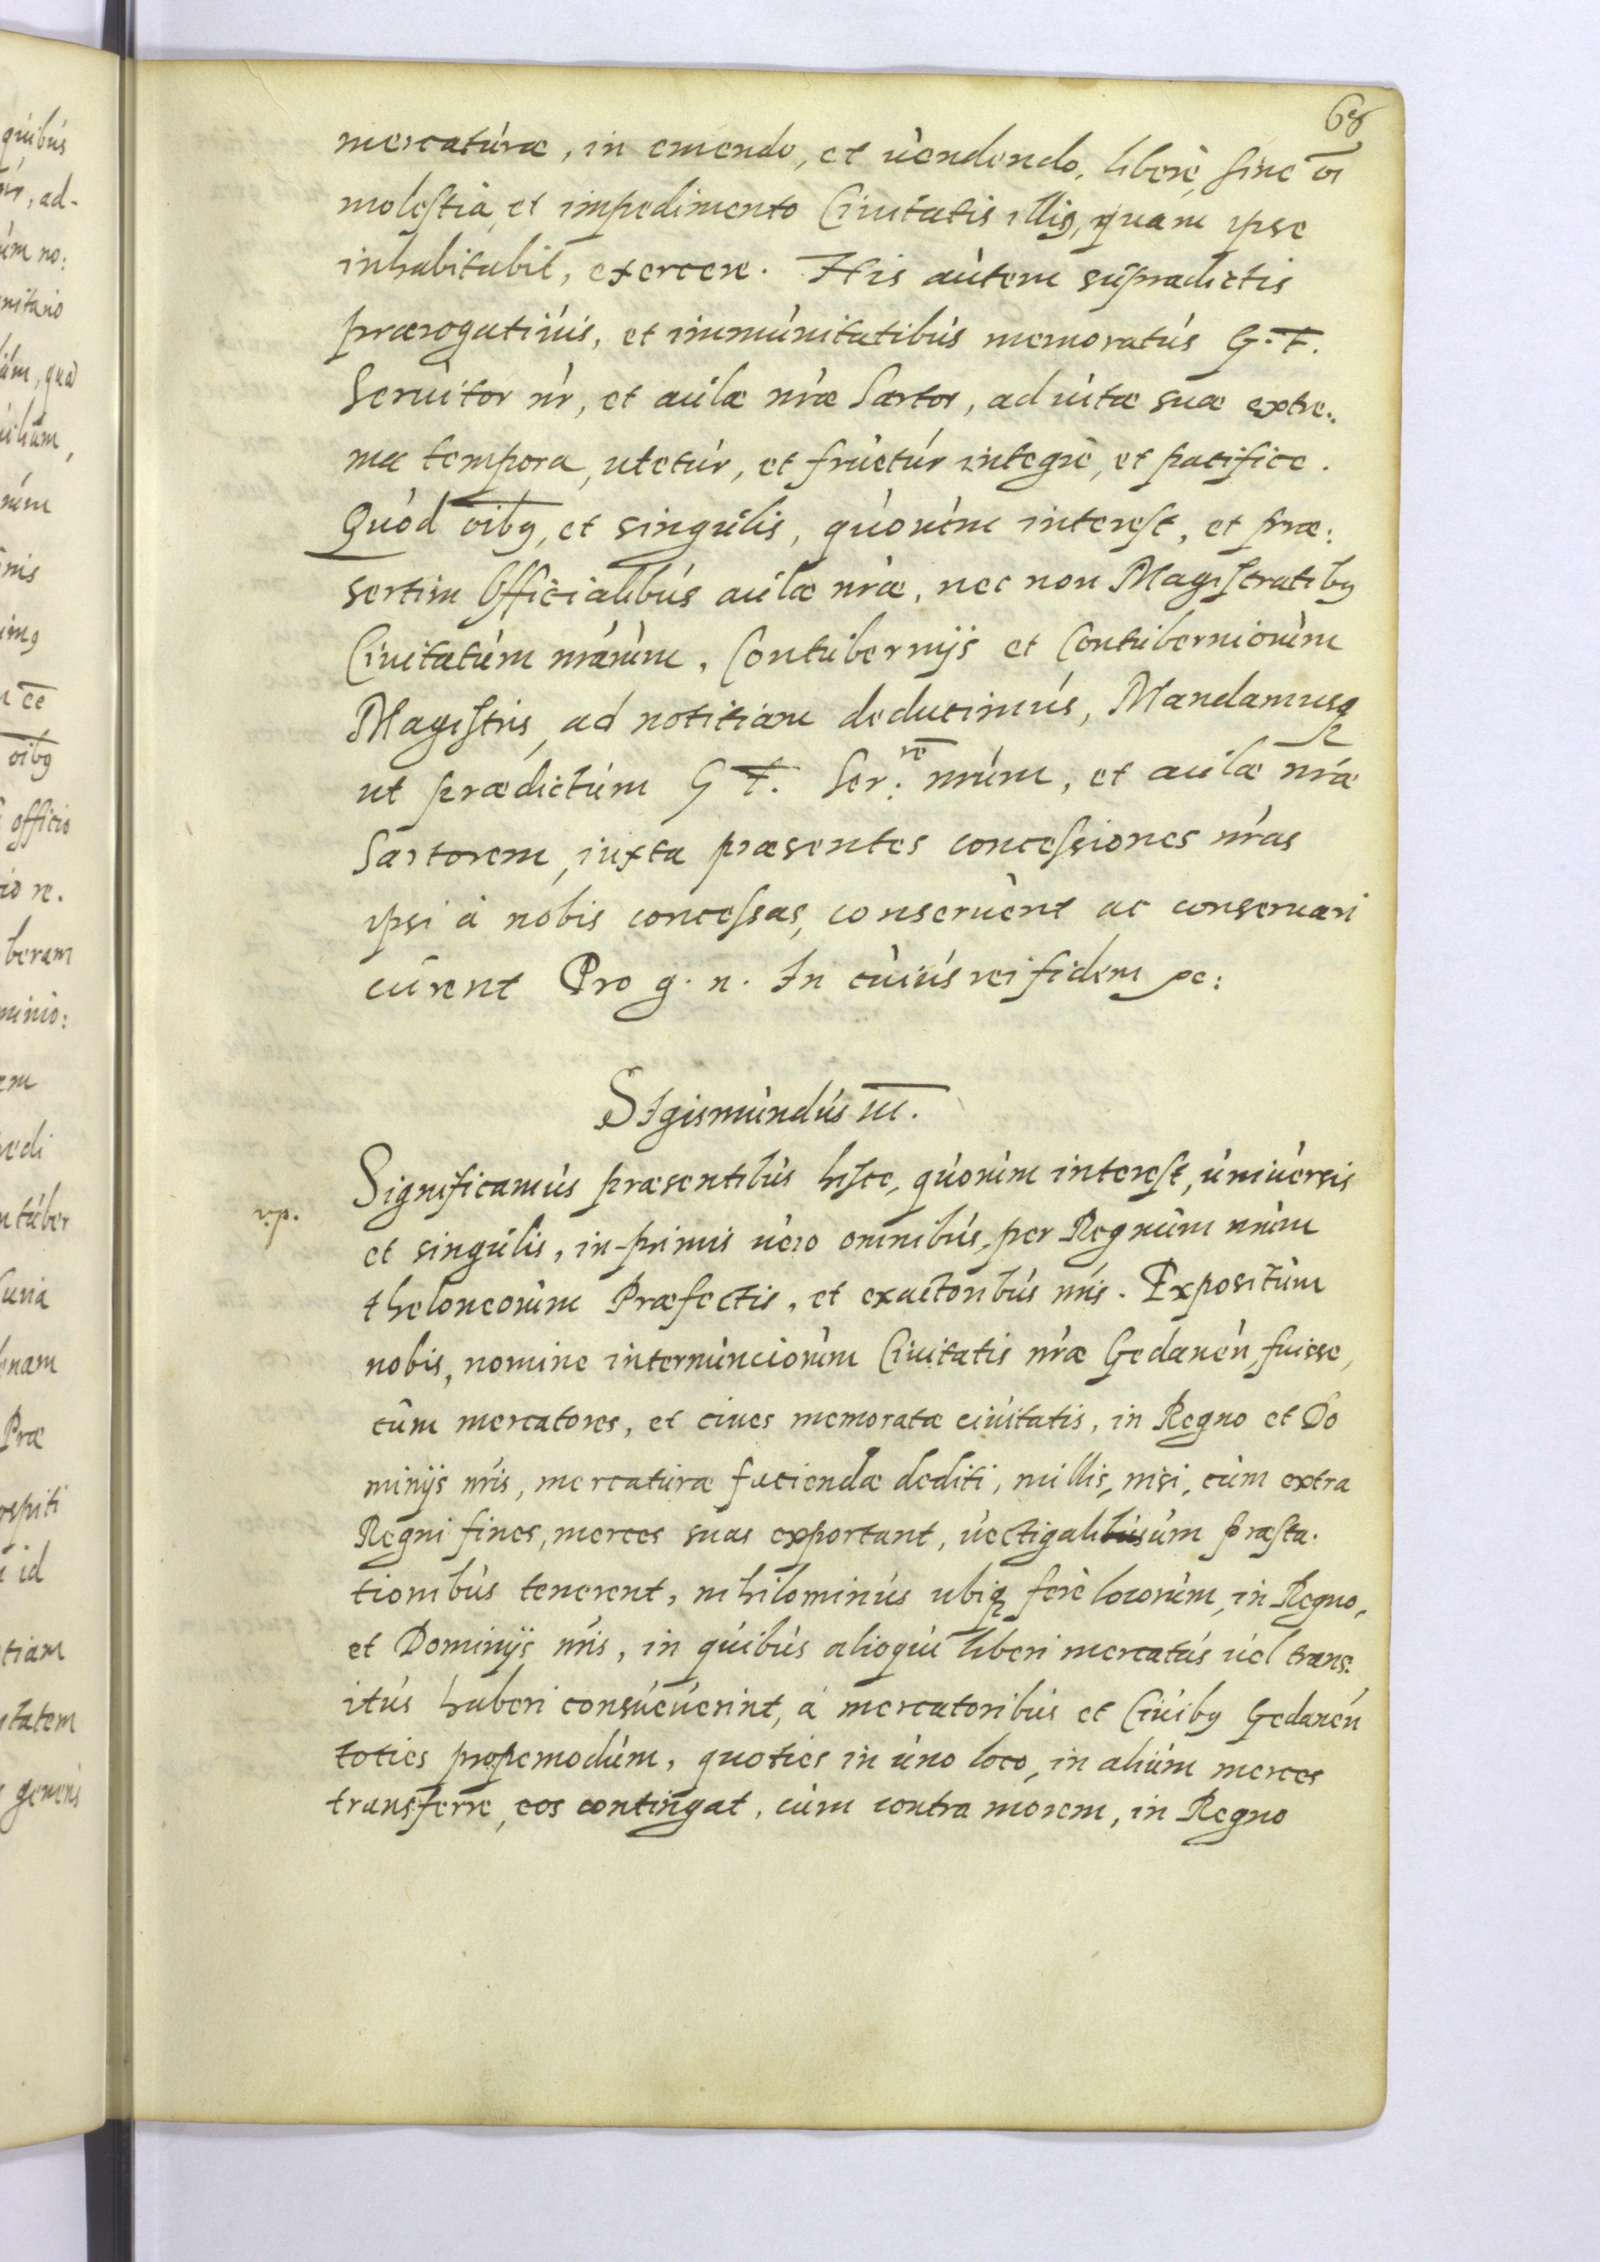 68
mercaturæ, in emendo, et vendendo, liberè, sine oi
molestia, et impedimento Civitatis illis, quam ipse
inhabitabit, exercere. His autem supradictis
prærogativis, et immunitatibus memoratus G. F.
Servitor nr, et aulæ nræ Sartor, ad vitæ suæ extre:
ma tempora, utetur, et fruetur integrè, et pacifice.
Quòd oibg, et singulis, quorum interest, et præ:
sertim Officialibus aulæ nræ, nec non Magistratibg
Civitatum nrarum, Contubernijs et Contuberniorum
Magistris, ad notitiam deducimus, Mandamusq
ut prædictum G F. Ser:re nrum, et aulæ nræ
Sartorem, iuxta præsentes concessiones nras
ipsi à nobis concessas, conservent ac conservari
curent Pro g. n. In cuius rei fidem &c:
SIgismundus III.
Significamus præsentibus hisce, quorum interest, universis
v.p.
et singulis, in-primis vero omnibus, per Regnum nrum
theloneorum Præfectis, et exactoribus nris. Expositum
nobis, nomine internunciorum Civitatis nræ Gedanen, fuisse,
cum mercatores, et cives memoratæ civitatis, in Regno et Do
minijs nris, mercaturæ faciendæ dediti, nullis, nisi, cum extra
Regni fines, merces suas exportant, vectigalibusum præsta:
tionibus tenerent, nihilominus ubiq ferè locorum, in Regno,
et Dominijs nris, in quibus alioqui liberi mercatus vel trans:
itus haberi consueverint, à mercatoribus et Civibg Gedanen
toties propemodum, quoties in uno loco, in alium merces
transferre, eos contingat, cum contra morem, in Regno
quibus
ad-
um no:
nitaio
oibg
officio
beram
minio:
Præ
id
tiam
tatem
generis